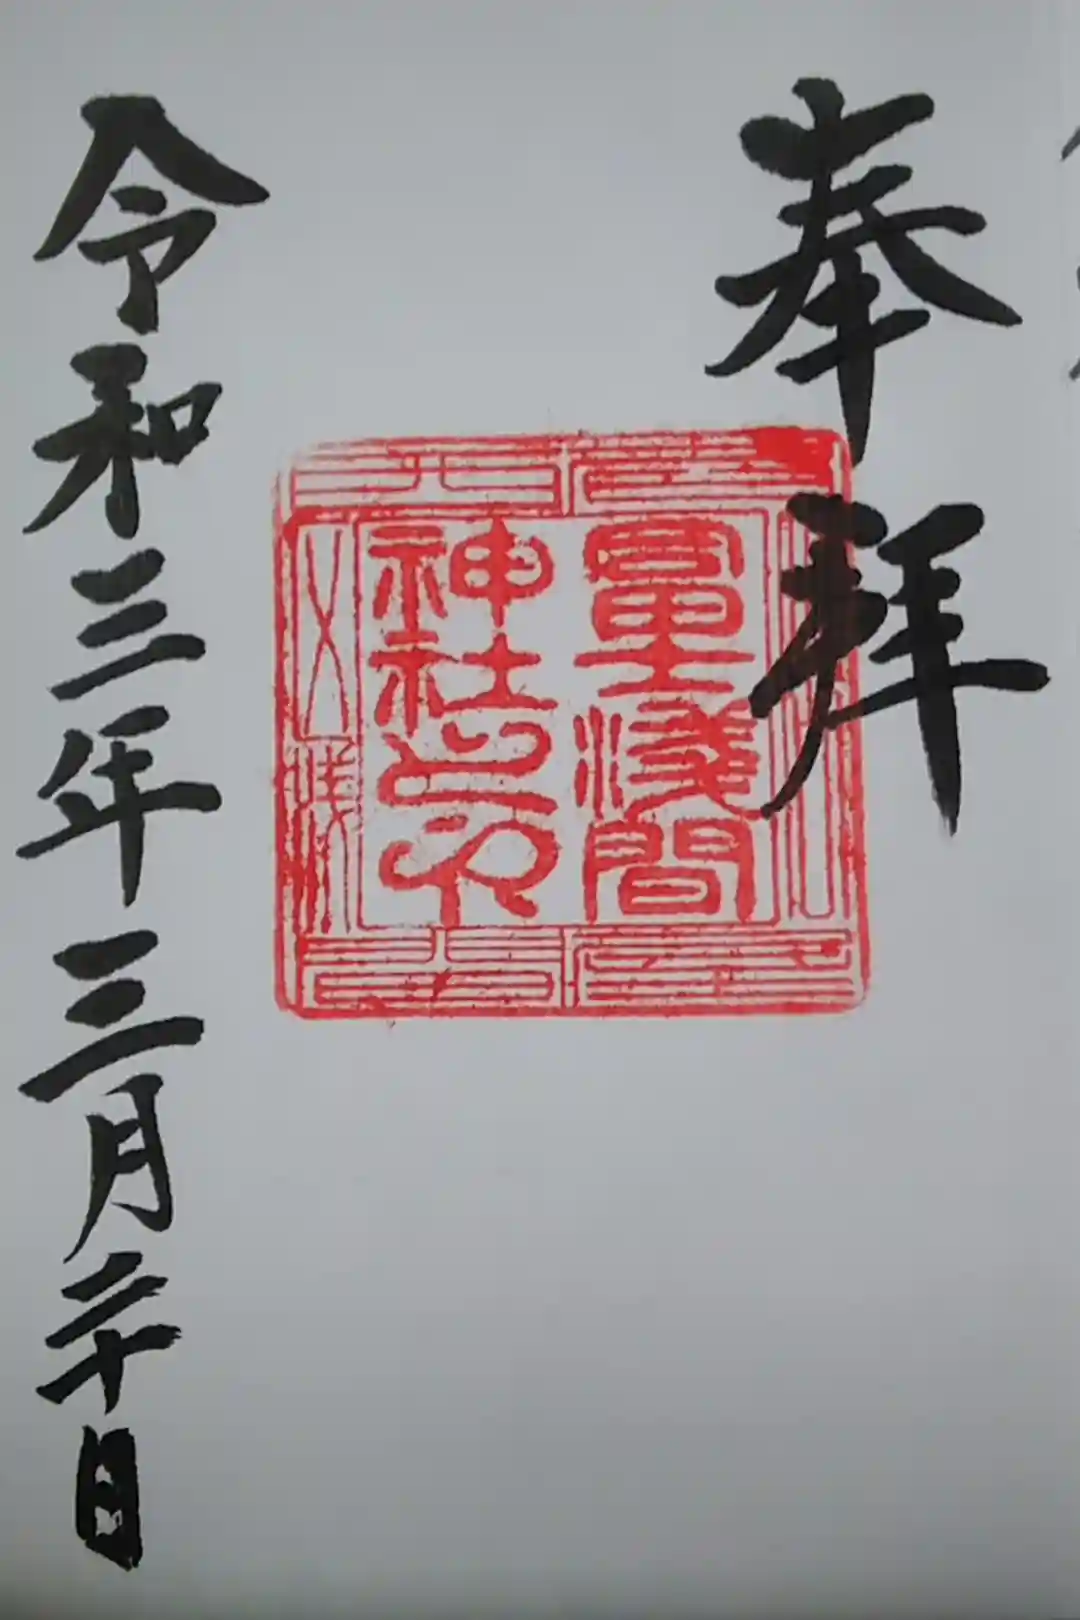 奉拝
冨士淺間
神社之印
令和三年三月二十日